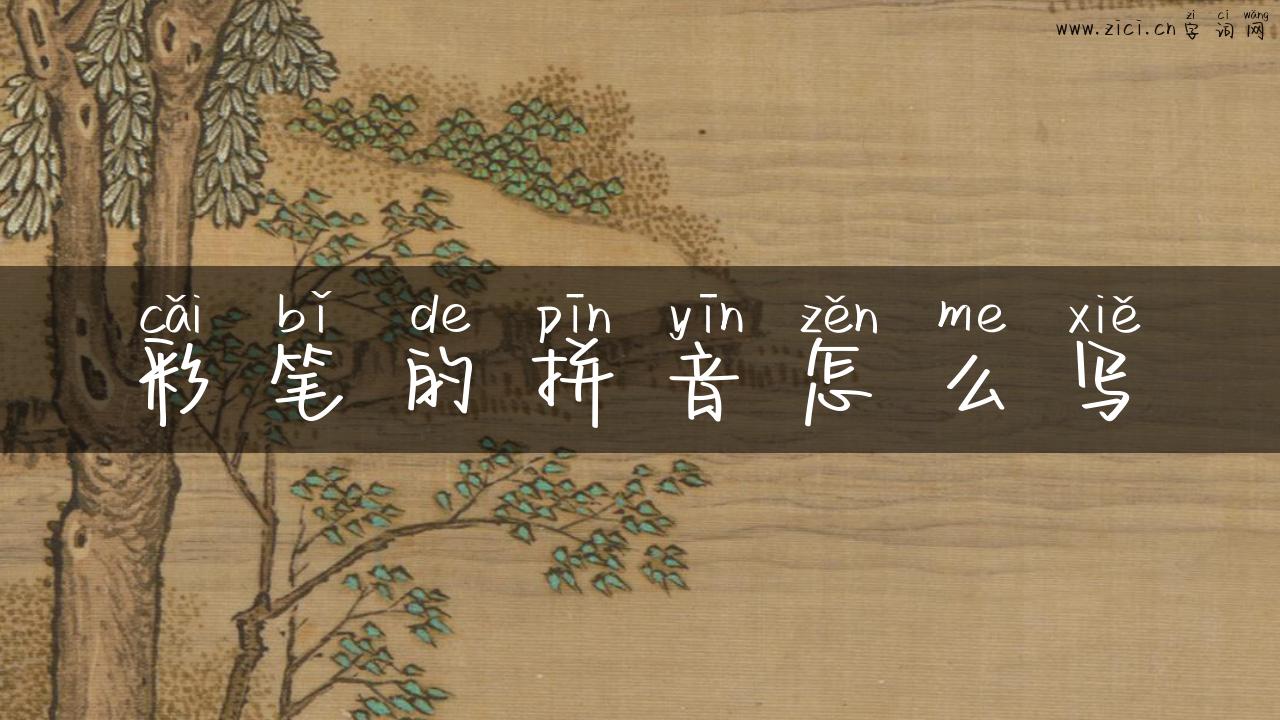 zì cí wǎng
www.zici.cn 字词网
cǎi bǐ de pīn yīn zěn me xiě
彩笔的拼音怎么写